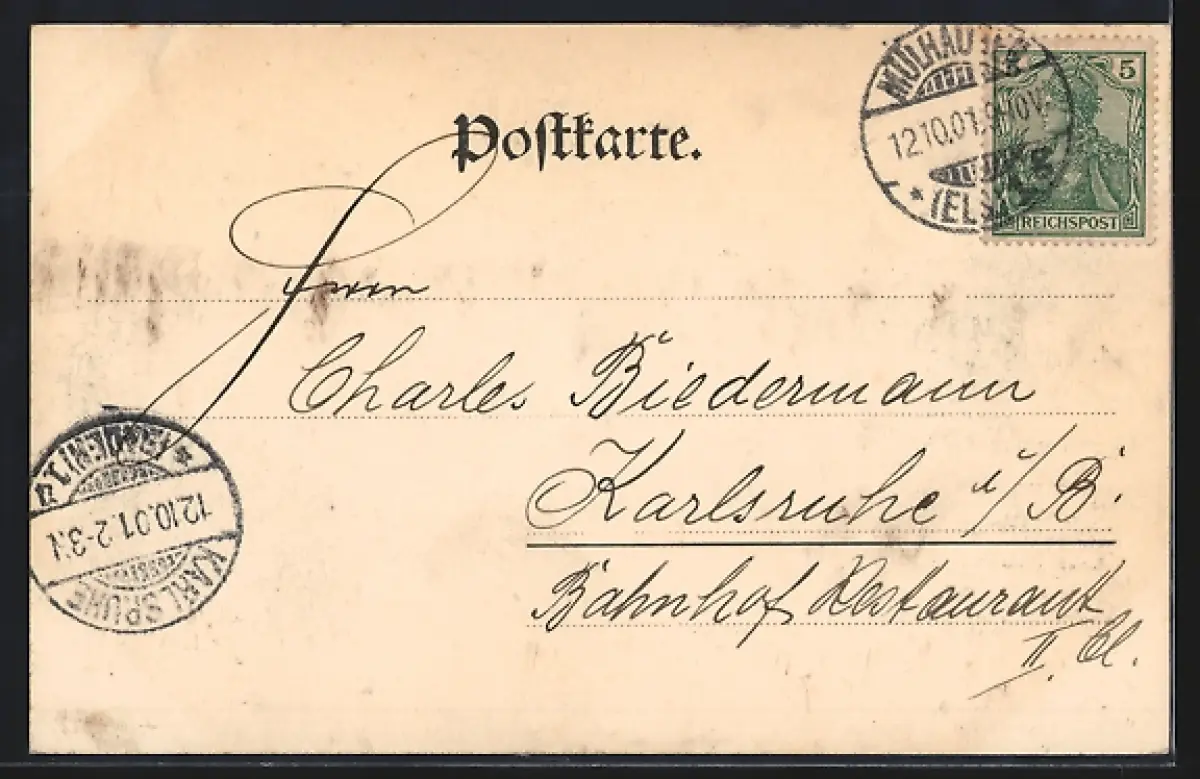 Postkarte.
MÜLHAUSEN
12.10.01.9-10V.
* (ELS.)
5
REICHSPOST
Herrn
Charles Biedermann
Karlsruhe i/B.
Bahnhof Restaurant
II. Cl.
* (BADEN) 1.
12.10.01.2-3.N
KARLSRUHE